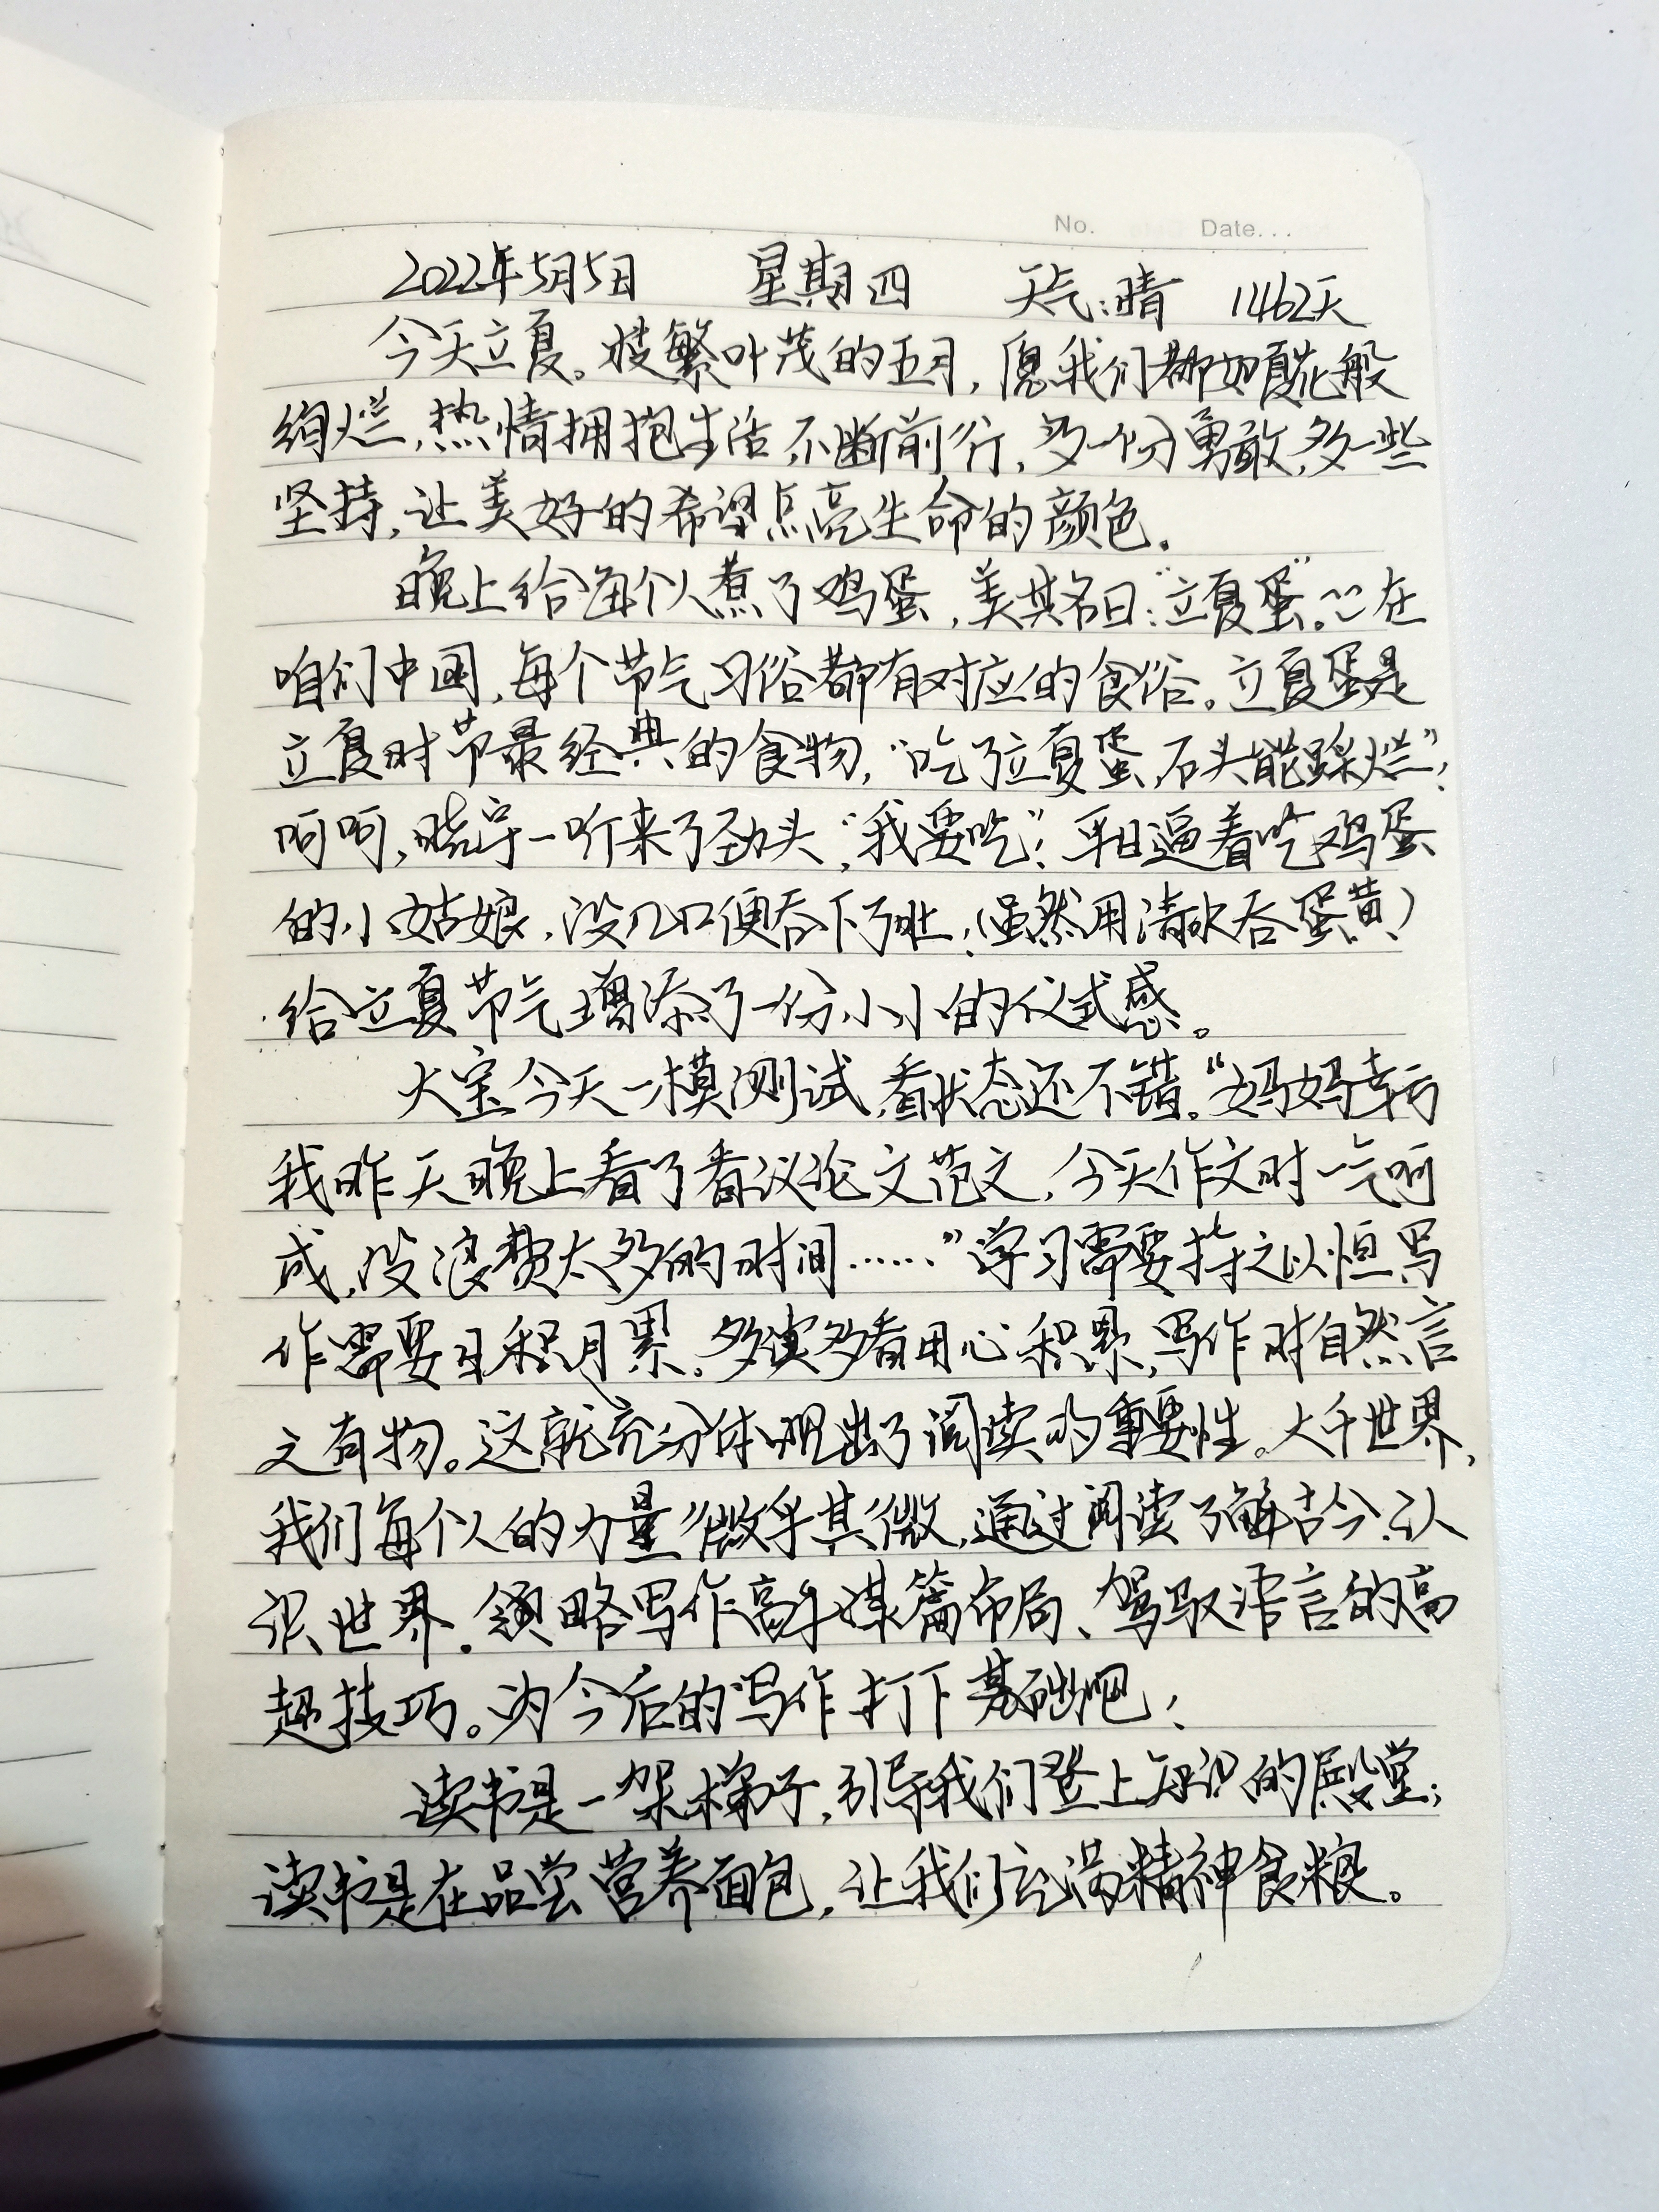 No. Date...
2022年5月5日 星期四 天气:晴 1462天
今天立夏。枝繁叶茂的五月,愿我们都如夏花般
绚烂,热情拥抱生活,不断前行,多一份勇敢,多一些
坚持,让美好的希望点亮生命的颜色。
晚上给每个人煮了鸡蛋,美其名曰:“立夏蛋”。在
咱们中国,每个节气习俗都有对应的食俗。立夏蛋是
立夏时节最经典的食物,“吃了立夏蛋,石头能踩烂”,
呵呵,晓宇一听来了劲头,“我要吃”!平日逼着吃鸡蛋
的小姑娘,没几口便吞下了肚,(虽然用清水吞蛋黄)
给立夏节气增添了一份小小的仪式感。
大宝今天一模测试,看状态还不错。“妈妈幸亏
我昨天晚上看了看议论文范文,今天作文时一气呵
成,没浪费太多的时间……”学习需要持之以恒,写
作需要日积月累。多读多看用心积累,写作时自然言
之有物。这就充分体现出了阅读的重要性。大千世界,
我们每个人的力量微乎其微,通过阅读了解古今,认
识世界。领略写作高手谋篇布局、驾驭语言的高
超技巧。为今后的写作打下基础吧!
读书是一架梯子,引导我们登上知识的殿堂;
读书是在品尝营养面包,让我们充满精神食粮。